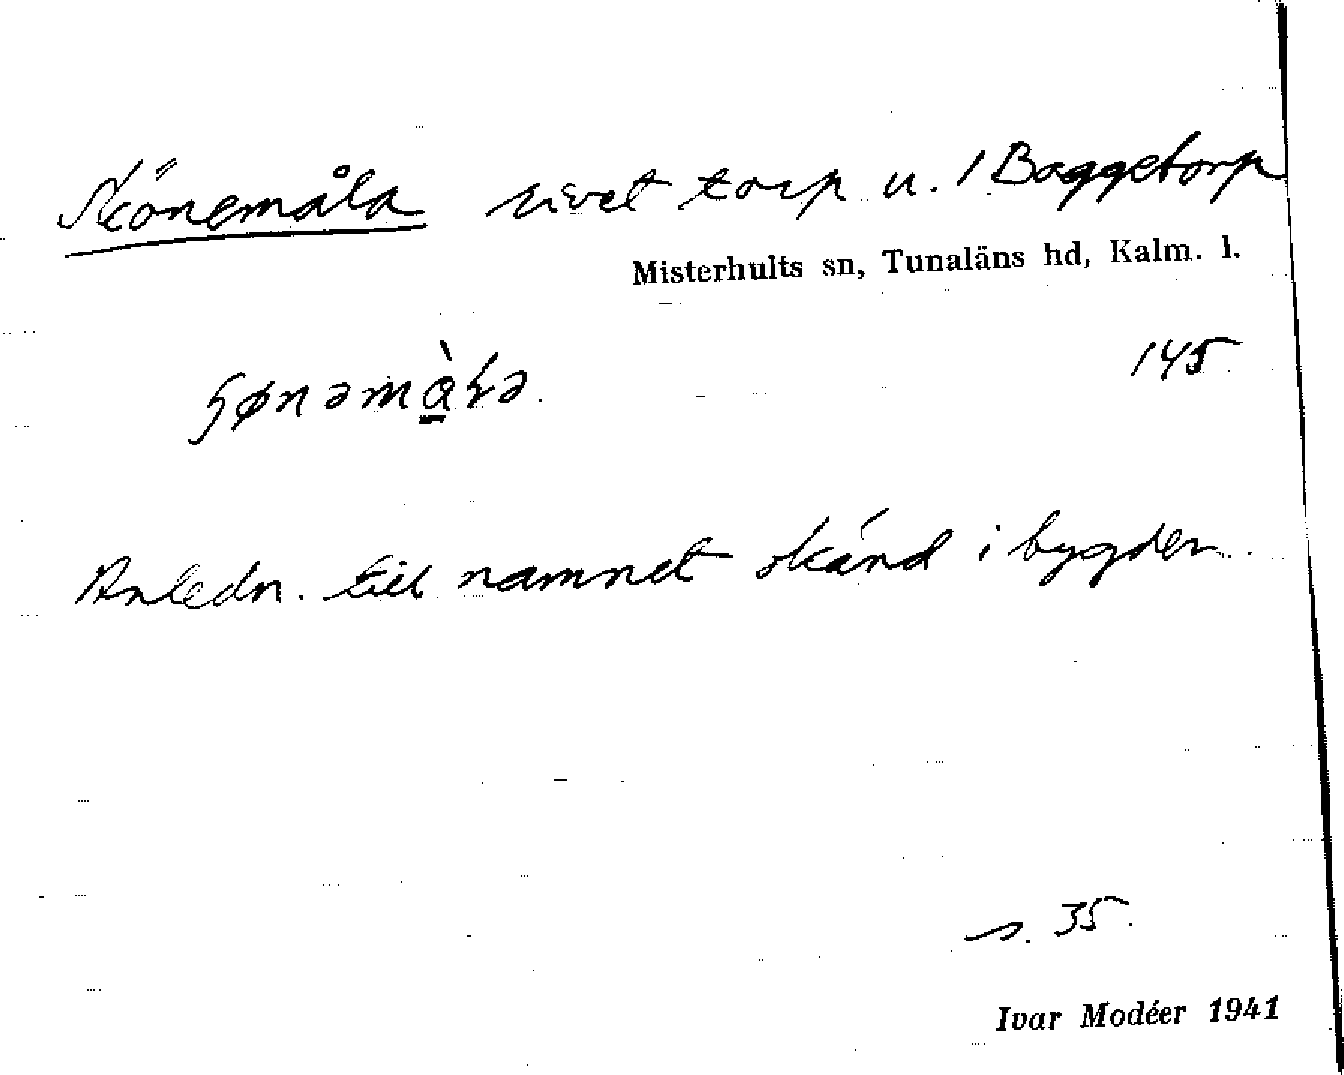 Skönemåla rivet torp u. 1 Baggetorp
Misterhults sn, Tunaläns hd, Kalm. l.
145
Anledn. till namnet okänd i bygden
s. 35.
Ivar Modéer 1941